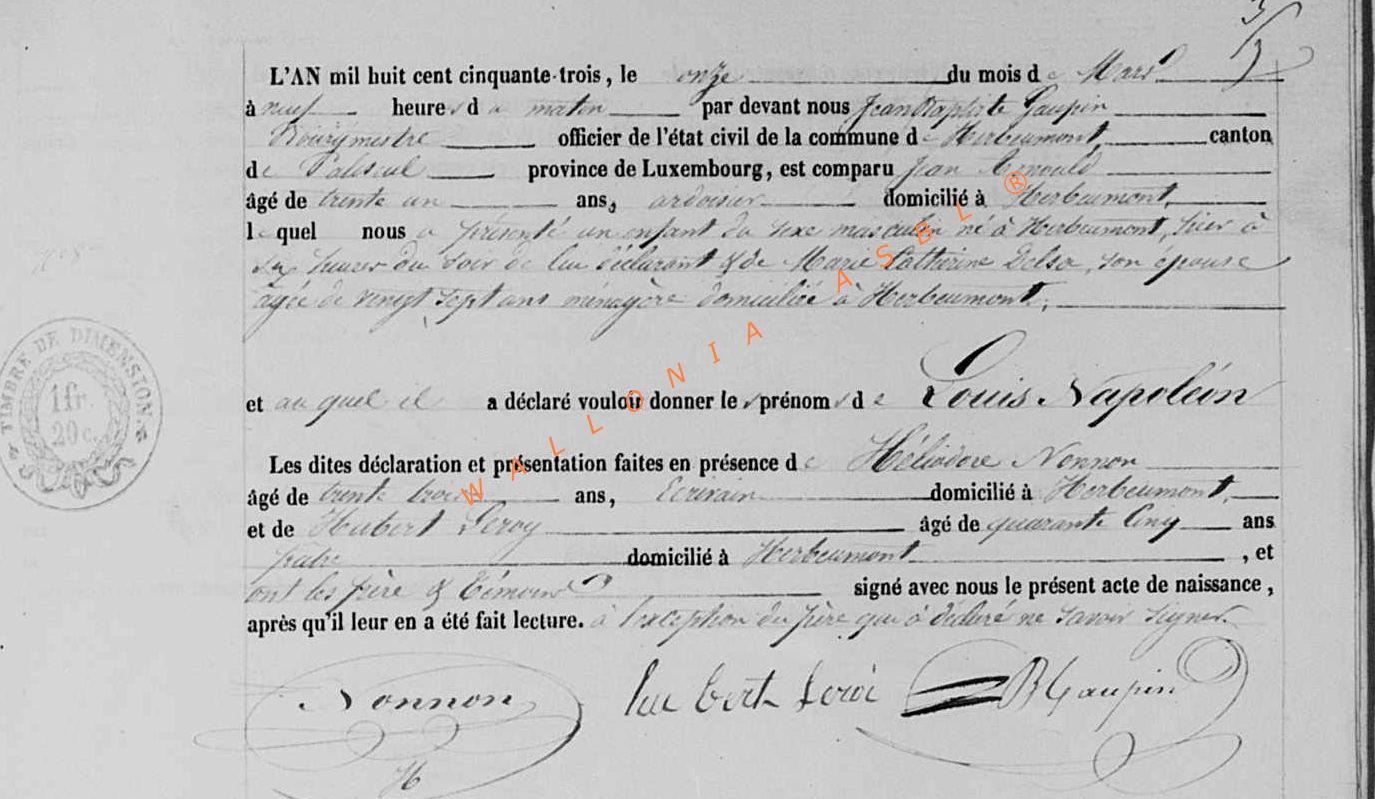 3/3
L'AN mil huit cent cinquante-trois, le onze du mois de Mars
à neuf heures du matin par devant nous Jean Baptiste Gaupin
Bourgmestre officier de l'état civil de la commune de Herbeumont, canton
de Paliseul province de Luxembourg, est comparu Jean Arnould
âgé de trente un ans, ardoisier domicilié à Herbeumont,
lequel nous a présenté un enfant du sexe masculin né à Herbeumont, hier à
six heures du soir de lui déclarant & de Marie Catherine Delsa, son épouse
agée de vingt sept ans ménagère domiciliée à Herbeumont,
et au quel il a déclaré vouloir donner les prénoms de Louis Napoléon
Les dites déclaration et présentation faites en présence de Héliodore Nonnon
âgé de trente trois ans, Ecrivain domicilié à Herbeumont,
et de Hubert Leroy âgé de quarante Cinq ans
domicilié à Herbeumont, et
ont les père & témoins signé avec nous le présent acte de naissance,
après qu'il leur en a été fait lecture. à l'exception du père qui à déclaré ne savoir signer.
Nonnon hubert Leroi JB Gaupin
N° 8
TIMBRE DE DIMENSION
1 fr.
20 c.
WALLONIA ASBL ®